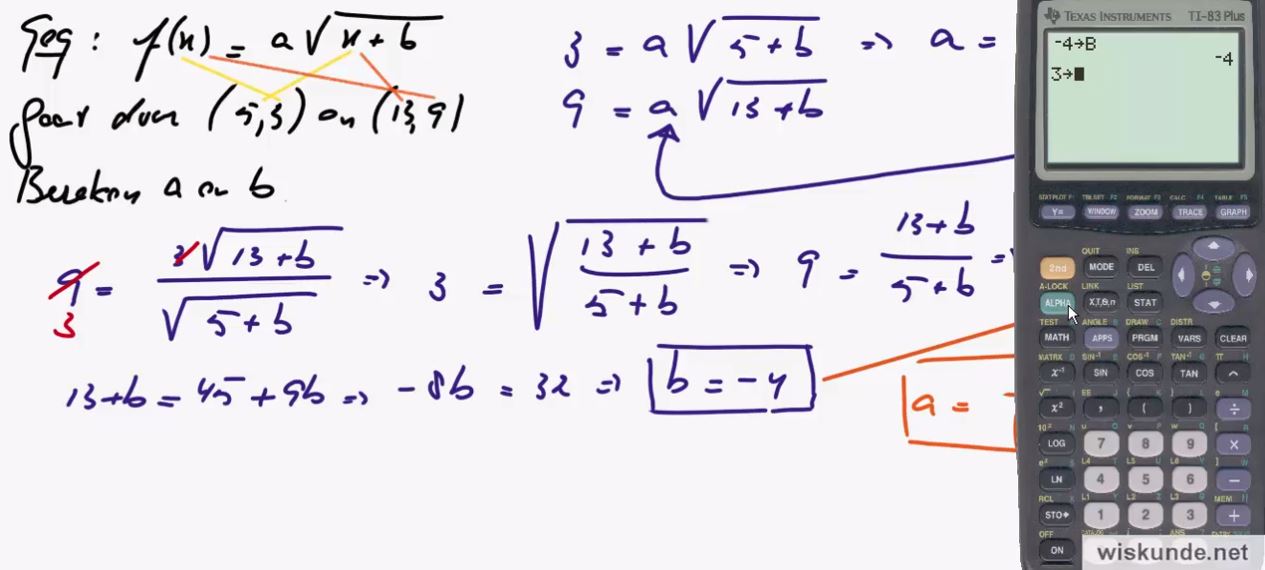 Geg : f(x) = a√(x + b)
gaat door (5,3) en (13,9)
Bereken a en b
3 = a√(5+b) => a =
9 = a√(13+b)
9 = 3√(13+b) / √(5+b) => 3 = √((13+b)/(5+b)) => 9 = (13+b)/(5+b) =>
3
13+b = 45+9b => -8b = 32 => b = -4
a =
TEXAS INSTRUMENTS TI-83 Plus
-4→B
-4
3→
STAT PLOT F1 TBLSET F2 FORMAT F3 CALC F4 TABLE F5
Y= WINDOW ZOOM TRACE GRAPH
QUIT INS
2nd MODE DEL
A-LOCK LINK LIST
ALPHA X,T,θ,n STAT
TEST ANGLE DRAW DISTR
MATH APPS PRGM VARS CLEAR
MATRX SIN⁻¹ COS⁻¹ TAN⁻¹ π
x⁻¹ SIN COS TAN ^
√ EE { } e
x² , ( ) ÷
10ˣ u v w [
LOG 7 8 9 ×
eˣ L4 L5 L6 ]
LN 4 5 6 −
RCL L1 L2 L3 MEM
STO→ 1 2 3 +
OFF CATALOG
ON
wiskunde.net